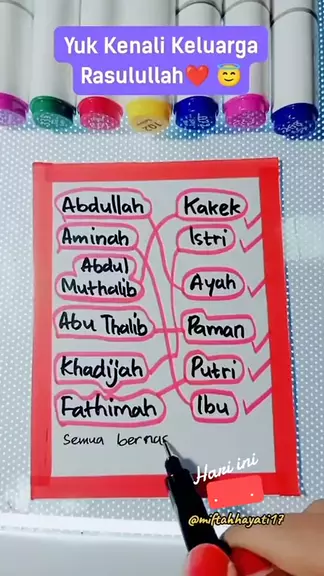 Yuk Kenali Keluarga
Rasulullah❤️ 😇
Abdullah
Kakek
Aminah
Istri
Abdul
Muthalib
Ayah
Abu Thalib
Paman
Khadijah
Putri
Fathimah
Ibu
semua bernas
Hari ini
@miftahhayati17